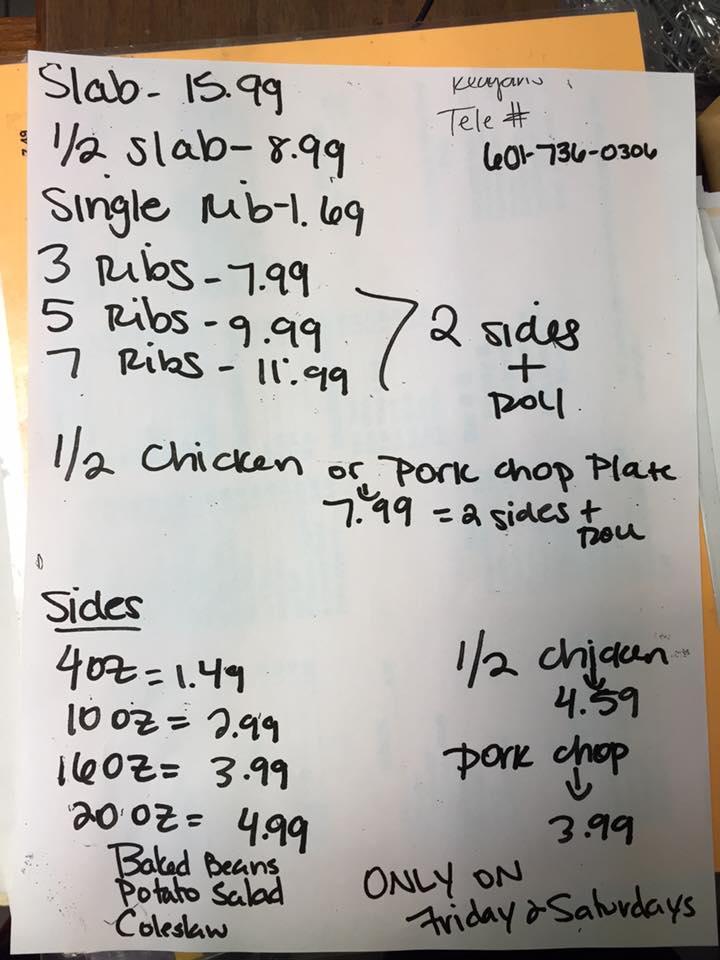 Slab - 15.99
1/2 slab - 8.99
Single Rib - 1.69
3 Ribs - 7.99
5 Ribs - 9.99
7 Ribs - 11.99
2 sides
+
Roll
Tele #
601-736-0306
1/2 Chicken or Pork chop Plate
7.99 = 2 sides +
Roll
Sides
4oz = 1.49
10 oz = 2.99
16oz = 3.99
20 oz = 4.99
Baked Beans
Potato Salad
Coleslaw
1/2 chicken
4.59
Pork chop
3.99
ONLY ON
Friday & Saturdays